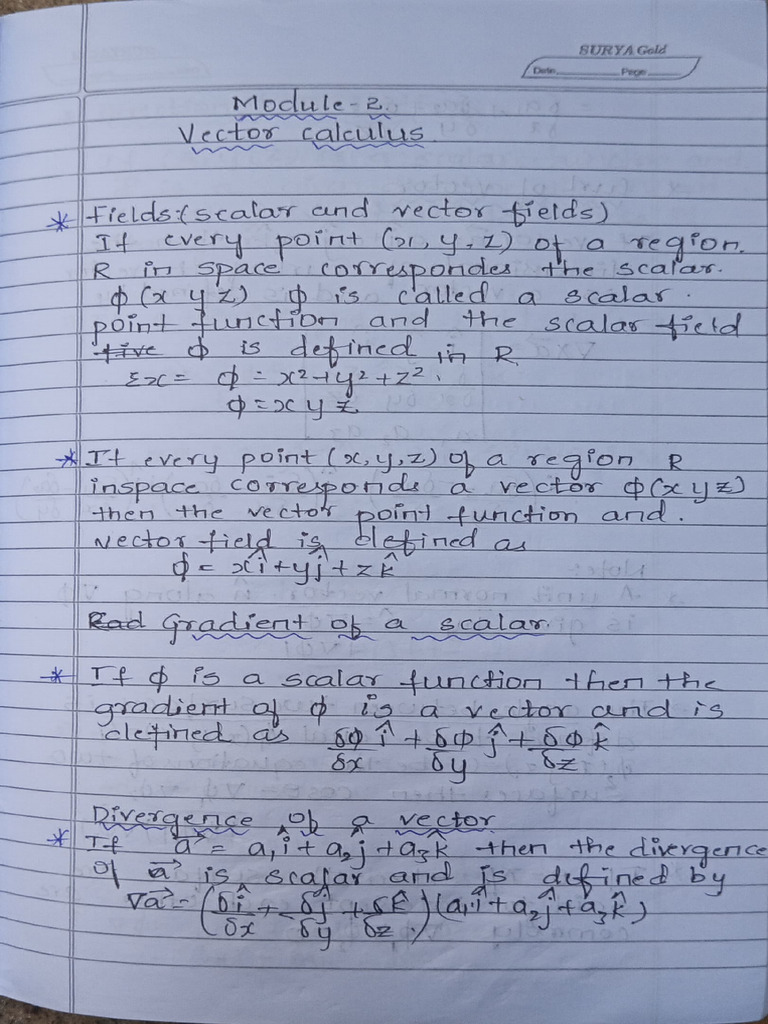 SURYA Gold
Date Page
Module-2.
Vector calculus.
* Fields:(scalar and vector fields)
If every point (x, y, z) of a region.
R in space correspondes the scalar.
ϕ(x y z) ϕ is called a scalar.
point function and the scalar field
ϕ is defined in R
Ex= ϕ = x²+y²+z².
ϕ = x y z
* If every point (x, y, z) of a region R
inspace corresponds a vector ϕ(x y z)
then the vector point function and.
vector field is defined as
ϕ = xî + yĵ + zk̂
Gradient of a scalar.
* If ϕ is a scalar function then the
gradient of ϕ is a vector and is
defined as δϕ/δx î + δϕ/δy ĵ + δϕ/δz k̂
Divergence of a vector
* If a⃗ = a₁î + a₂ĵ + a₃k̂ then the divergence
of a⃗ is scalar and is defined by
∇a⃗ = (δî/δx + δĵ/δy + δk̂/δz.) (a₁î + a₂ĵ + a₃k̂)